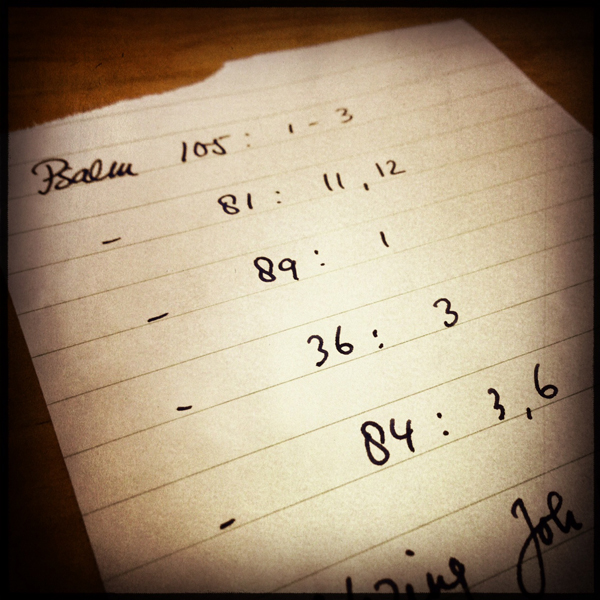 Psalm 105: 1-3
- 81: 11, 12
- 89: 1
- 36: 3
- 84: 3,6
Joh